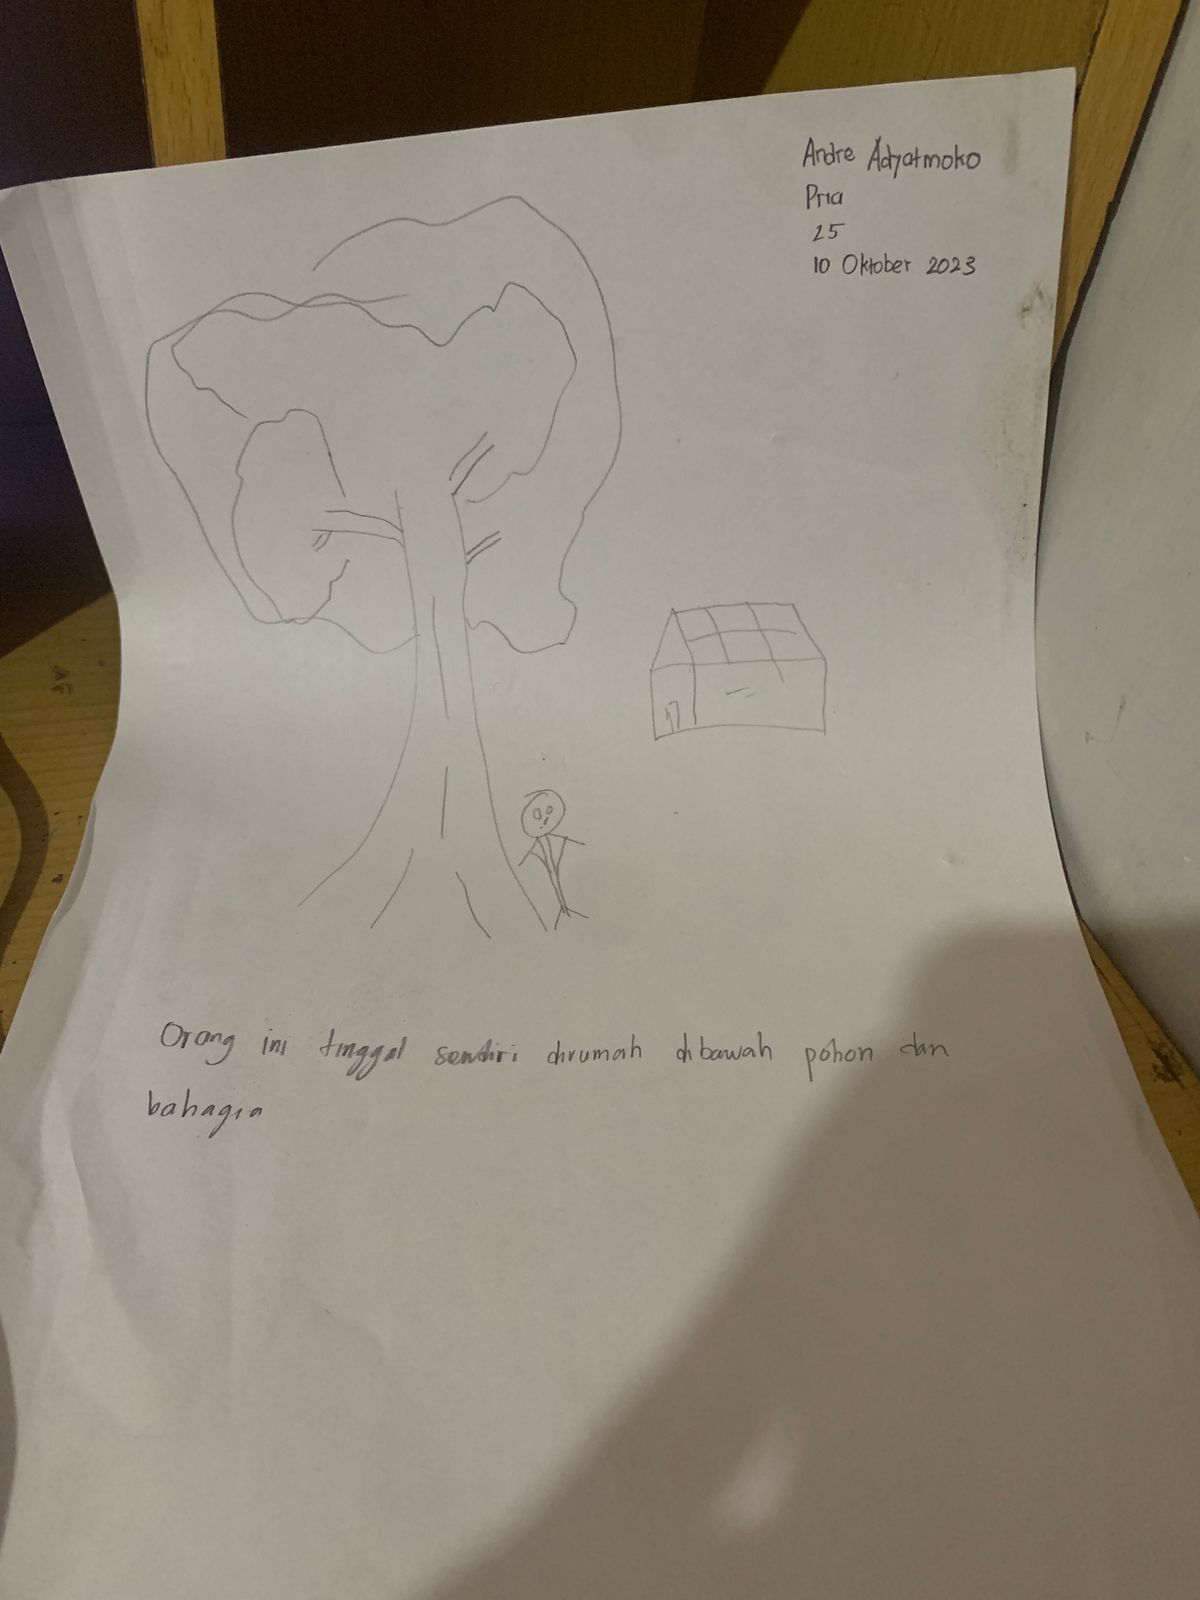 Andre Adyatmoko
Pria
25
10 Oktober 2023
Orang ini tinggal sendiri dirumah dibawah pohon dan
bahagia